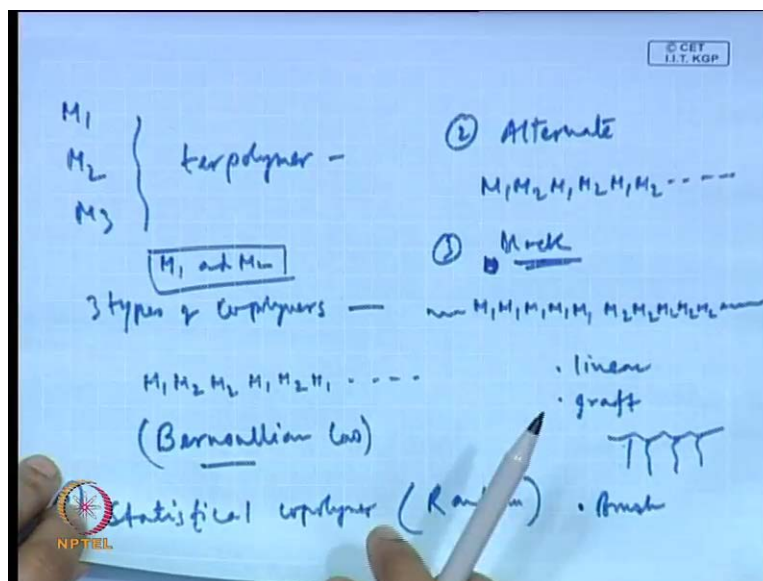 © CET
I.I.T. KGP
M1
M2
M3
terpolymer –
M1 and M2
3 types of copolymers —
M1 M2 M2 M1 M2 M1 . . . .
(Bernoullian law)
Statistical copolymer (Random)
② Alternate
M1 M2 M1 M2 M1 M2 - - - -
③ Block
M1 M1 M1 M1 M1 M2 M2 M2 M2 M2
· linear
· graft
· Brush
NPTEL